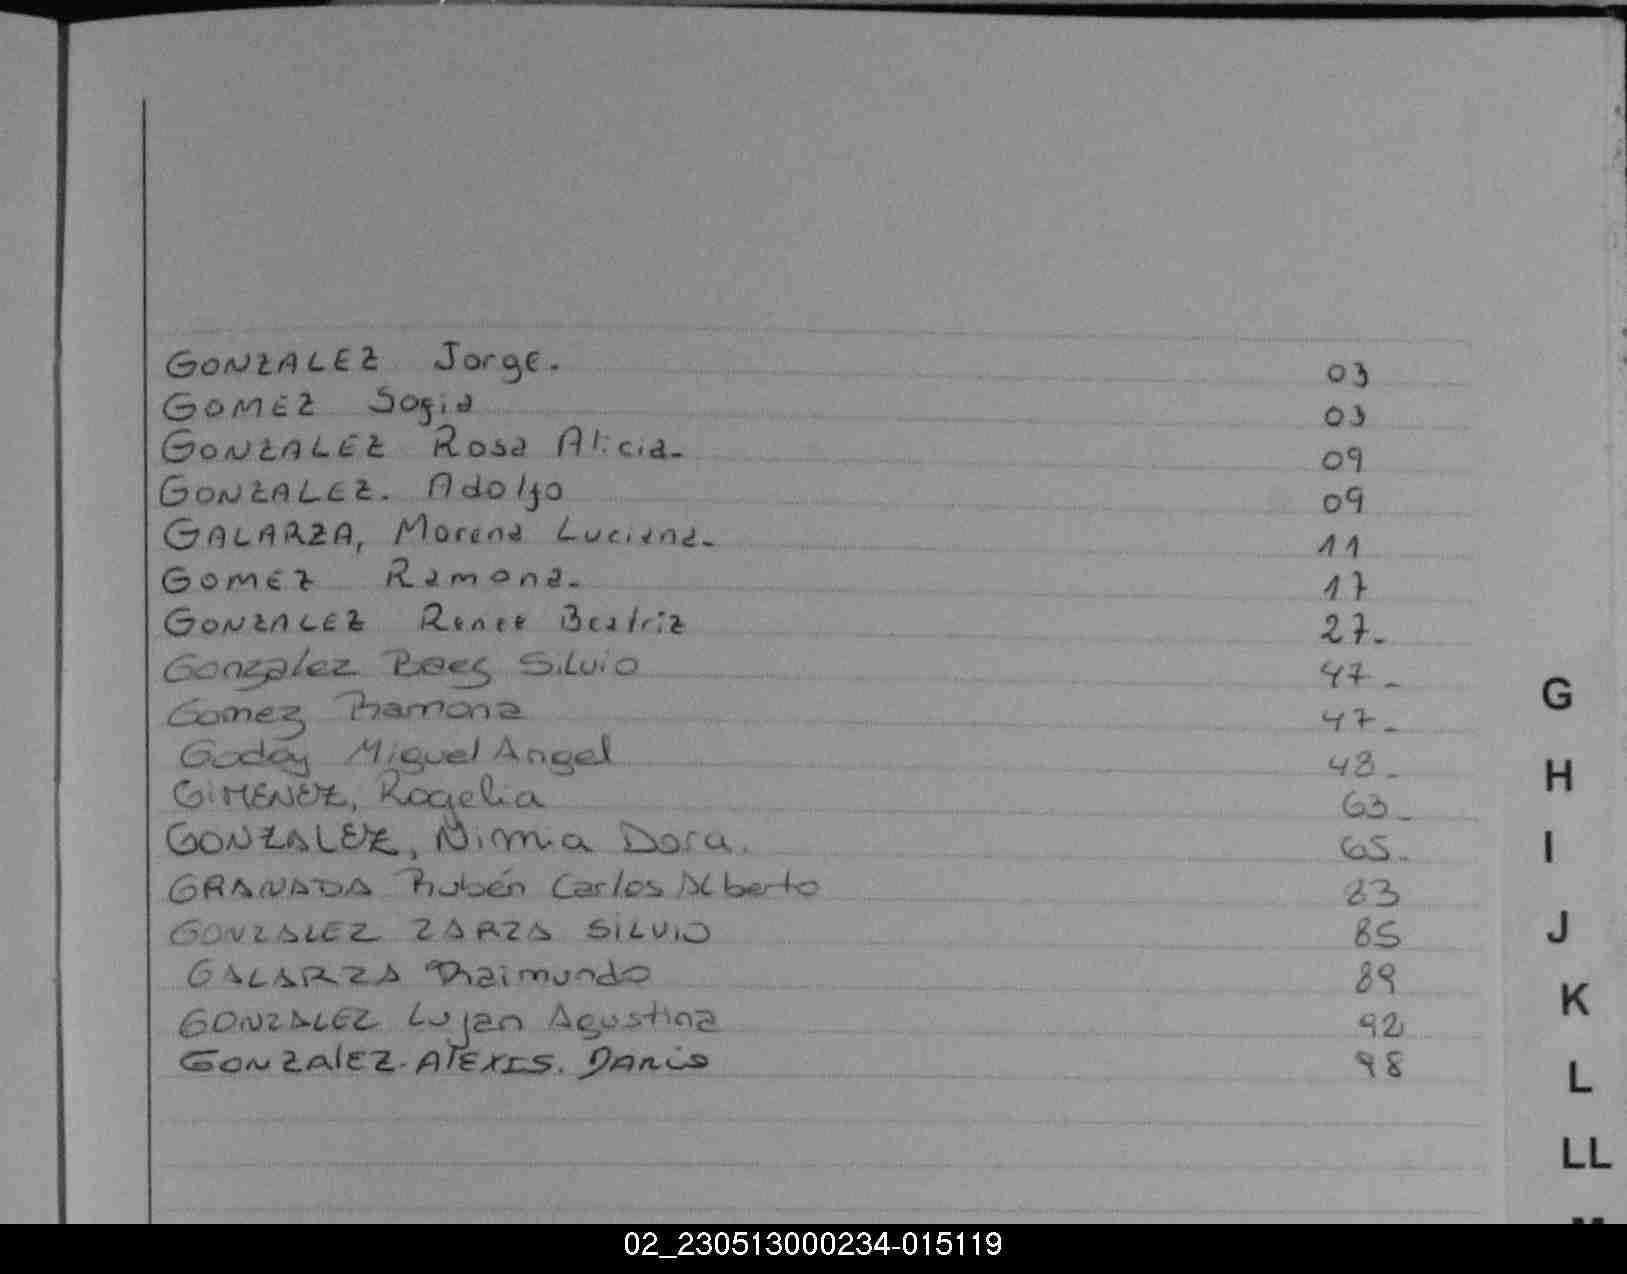 GONZALEZ Jorge. 03
GOMEZ Sofia 03
GONZALEZ Rosa Alicia- 09
GONZALEZ. Adolfo 09
GALARZA, Morena Luciana- 11
GOMEZ Ramona- 17
GONZALEZ Renee Beatriz 27-
Gonzalez Baez Silvio 47-
Gomez Ramona 47-
Godoy Miguel Angel 48-
GIMENEZ, Rogelia 63-
GONZALEZ, Nimia Dora. 65-
GRANADA Rubén Carlos Alberto 83
GONZALEZ ZARZA SILVIO 85
GALARZA Raimundo 89
GONZALEZ Lujan Agustina 92
GONZAlEZ. AlEXIS. DARIO 98
G
H
I
J
K
L
LL
02_230513000234-015119